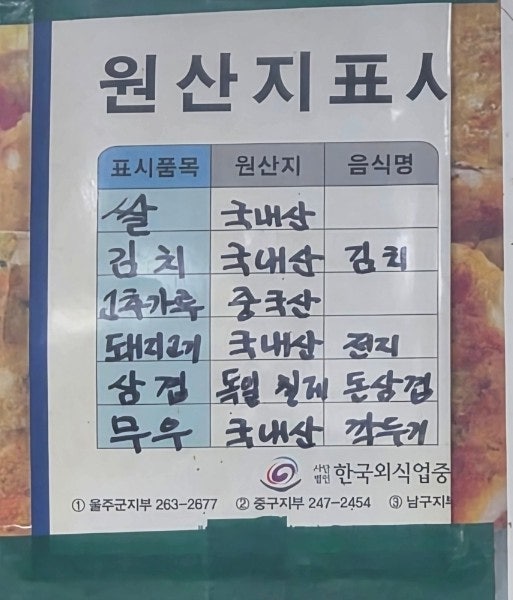 원산지표시
표시품목 원산지 음식명
쌀 국내산
김치 국내산 김치
고추가루 중국산
돼지고기 국내산 전지
삼겹 독일 칠레 돈삼겹
무우 국내산 깍두기
사단법인 한국외식업중
① 울주군지부 263-2677 ② 중구지부 247-2454 ③ 남구지부